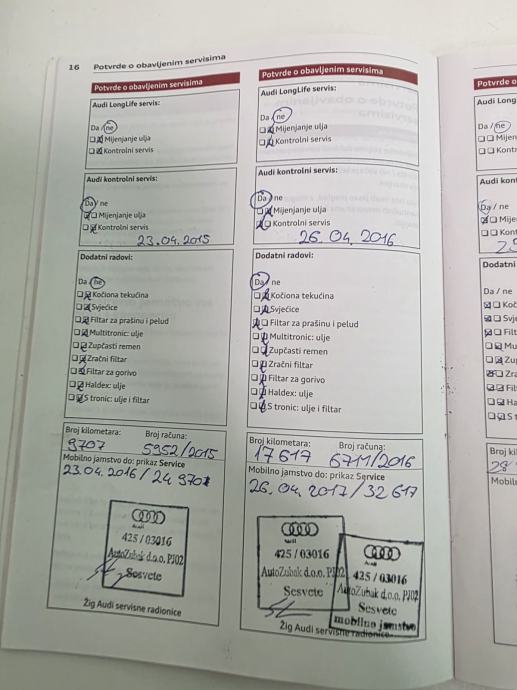 16 Potvrde o obavljenim servisima
Potvrde o obavljenim servisima
Audi LongLife servis:
Da / ne
Mijenjanje ulja
Kontrolni servis
Audi kontrolni servis:
Da / ne
Mijenjanje ulja
Kontrolni servis
23.04.2015
Dodatni radovi:
Da / ne
Kočiona tekućina
Svjećice
Filtar za prašinu i pelud
Multitronic: ulje
Zupčasti remen
Zračni filtar
Filtar za gorivo
Haldex: ulje
S tronic: ulje i filtar
Broj kilometara: Broj računa:
9707 5952/2015
Mobilno jamstvo do: prikaz Service
23.04.2016 / 24 707
Audi
425 / 03016
AutoZubak d.o.o. PJ02
Sesvete
Žig Audi servisne radionice
Potvrde o obavljenim servisima
Audi LongLife servis:
Da / ne
Mijenjanje ulja
Kontrolni servis
Audi kontrolni servis:
Da / ne
Mijenjanje ulja
Kontrolni servis
26.04.2016
Dodatni radovi:
Da / ne
Kočiona tekućina
Svjećice
Filtar za prašinu i pelud
Multitronic: ulje
Zupčasti remen
Zračni filtar
Filtar za gorivo
Haldex: ulje
S tronic: ulje i filtar
Broj kilometara: Broj računa:
17 617 6711/2016
Mobilno jamstvo do: prikaz Service
26.04.2017 / 32 617
Audi
425 / 03016
AutoZubak d.o.o. PJ02
Sesvete
Audi
425 / 03016
AutoZubak d.o.o. PJ02
Sesvete
mobilno jamstvo
Žig Audi servisne radionice
Potvrde o
Audi Long
Da / ne
Audi kont
Da / ne
Dodatni
Da / ne
Broj ki
Mobiln